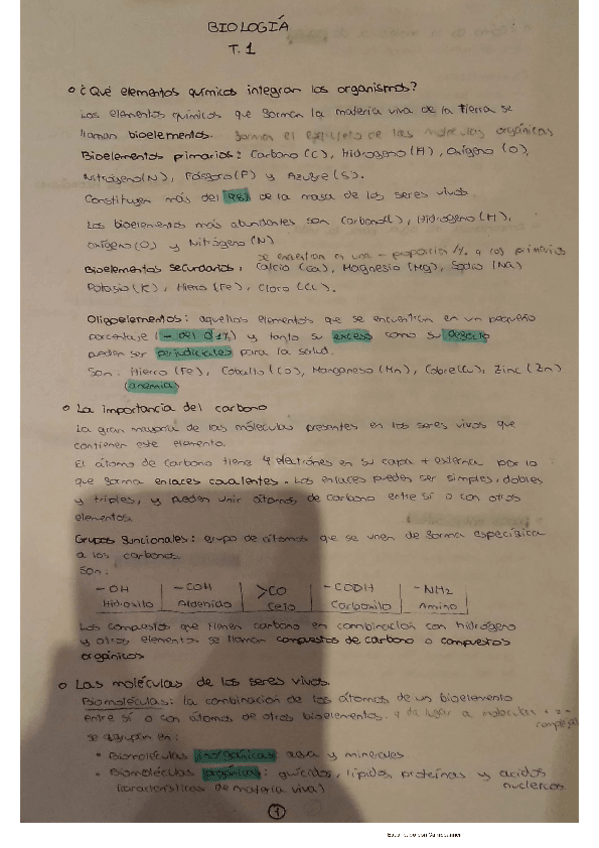 BIOLOGÍA
T.1
¿Qué elementos químicos integran los organismos?
Los elementos químicos que forman la materia viva de la tierra se
llaman bioelementos. Forman el de las moléculas orgánicas
Bioelementos primarios: Carbono (C), Hidrogeno (H), Oxígeno (O),
Nitrógeno (N), Fósforo (P) y Azufre (S).
Constituyen más del 98% de la masa de los seres vivos
Los bioelementos más abundantes son Carbono (C), Hidrógeno (H),
Oxígeno (O) y Nitrógeno (N)
se encuentran en una - proporción q los primarios
Bioelementos secundarios: Calcio (Ca), Magnesio (Mg), Sodio (Na)
Potasio (K), Hierro (Fe), Cloro (Cl).
Oligoelementos: aquellos elementos que se encuentran en un pequeño
porcentaje (- del 0'1%) y tanto su exceso como su defecto
pueden ser perjudiciales para la salud.
Son: Hierro (Fe), Cobalto (Co), Manganeso (Mn), Cobre (Cu), Zinc (Zn)
(anemia)
La importancia del carbono
La gran mayoría de las moléculas presentes en los seres vivos que
contienen este elemento.
El átomo de carbono tiene 4 electrónes en su capa + externa por lo
que forma enlaces covalentes. Los enlaces pueden ser simples, dobles
y triples, y pueden unir átomos de carbono entre sí o con otros
elementos.
Grupos funcionales: grupo de átomos que se unen de forma específica
a los carbonos.
Son:
-OH -COH >CO -COOH -NH2
Hidroxilo Aldehido Ceto Carboxilo Amino
Los compuestos que tienen carbono en combinación con hidrógeno
y otros elementos se llaman compuestos de carbono o compuestos
orgánicos
Las moléculas de los seres vivos.
Biomoléculas: la combinación de los átomos de un bioelemento
entre sí o con átomos de otros bioelementos. q da lugar a moléculas + o -
complejas
se agrupan en:
Biomoléculas inorgánicas: agua y minerales
Biomoléculas orgánicas: glúcidos, lípidos, proteínas y acidos
nucleicos
(características de materia viva)
1